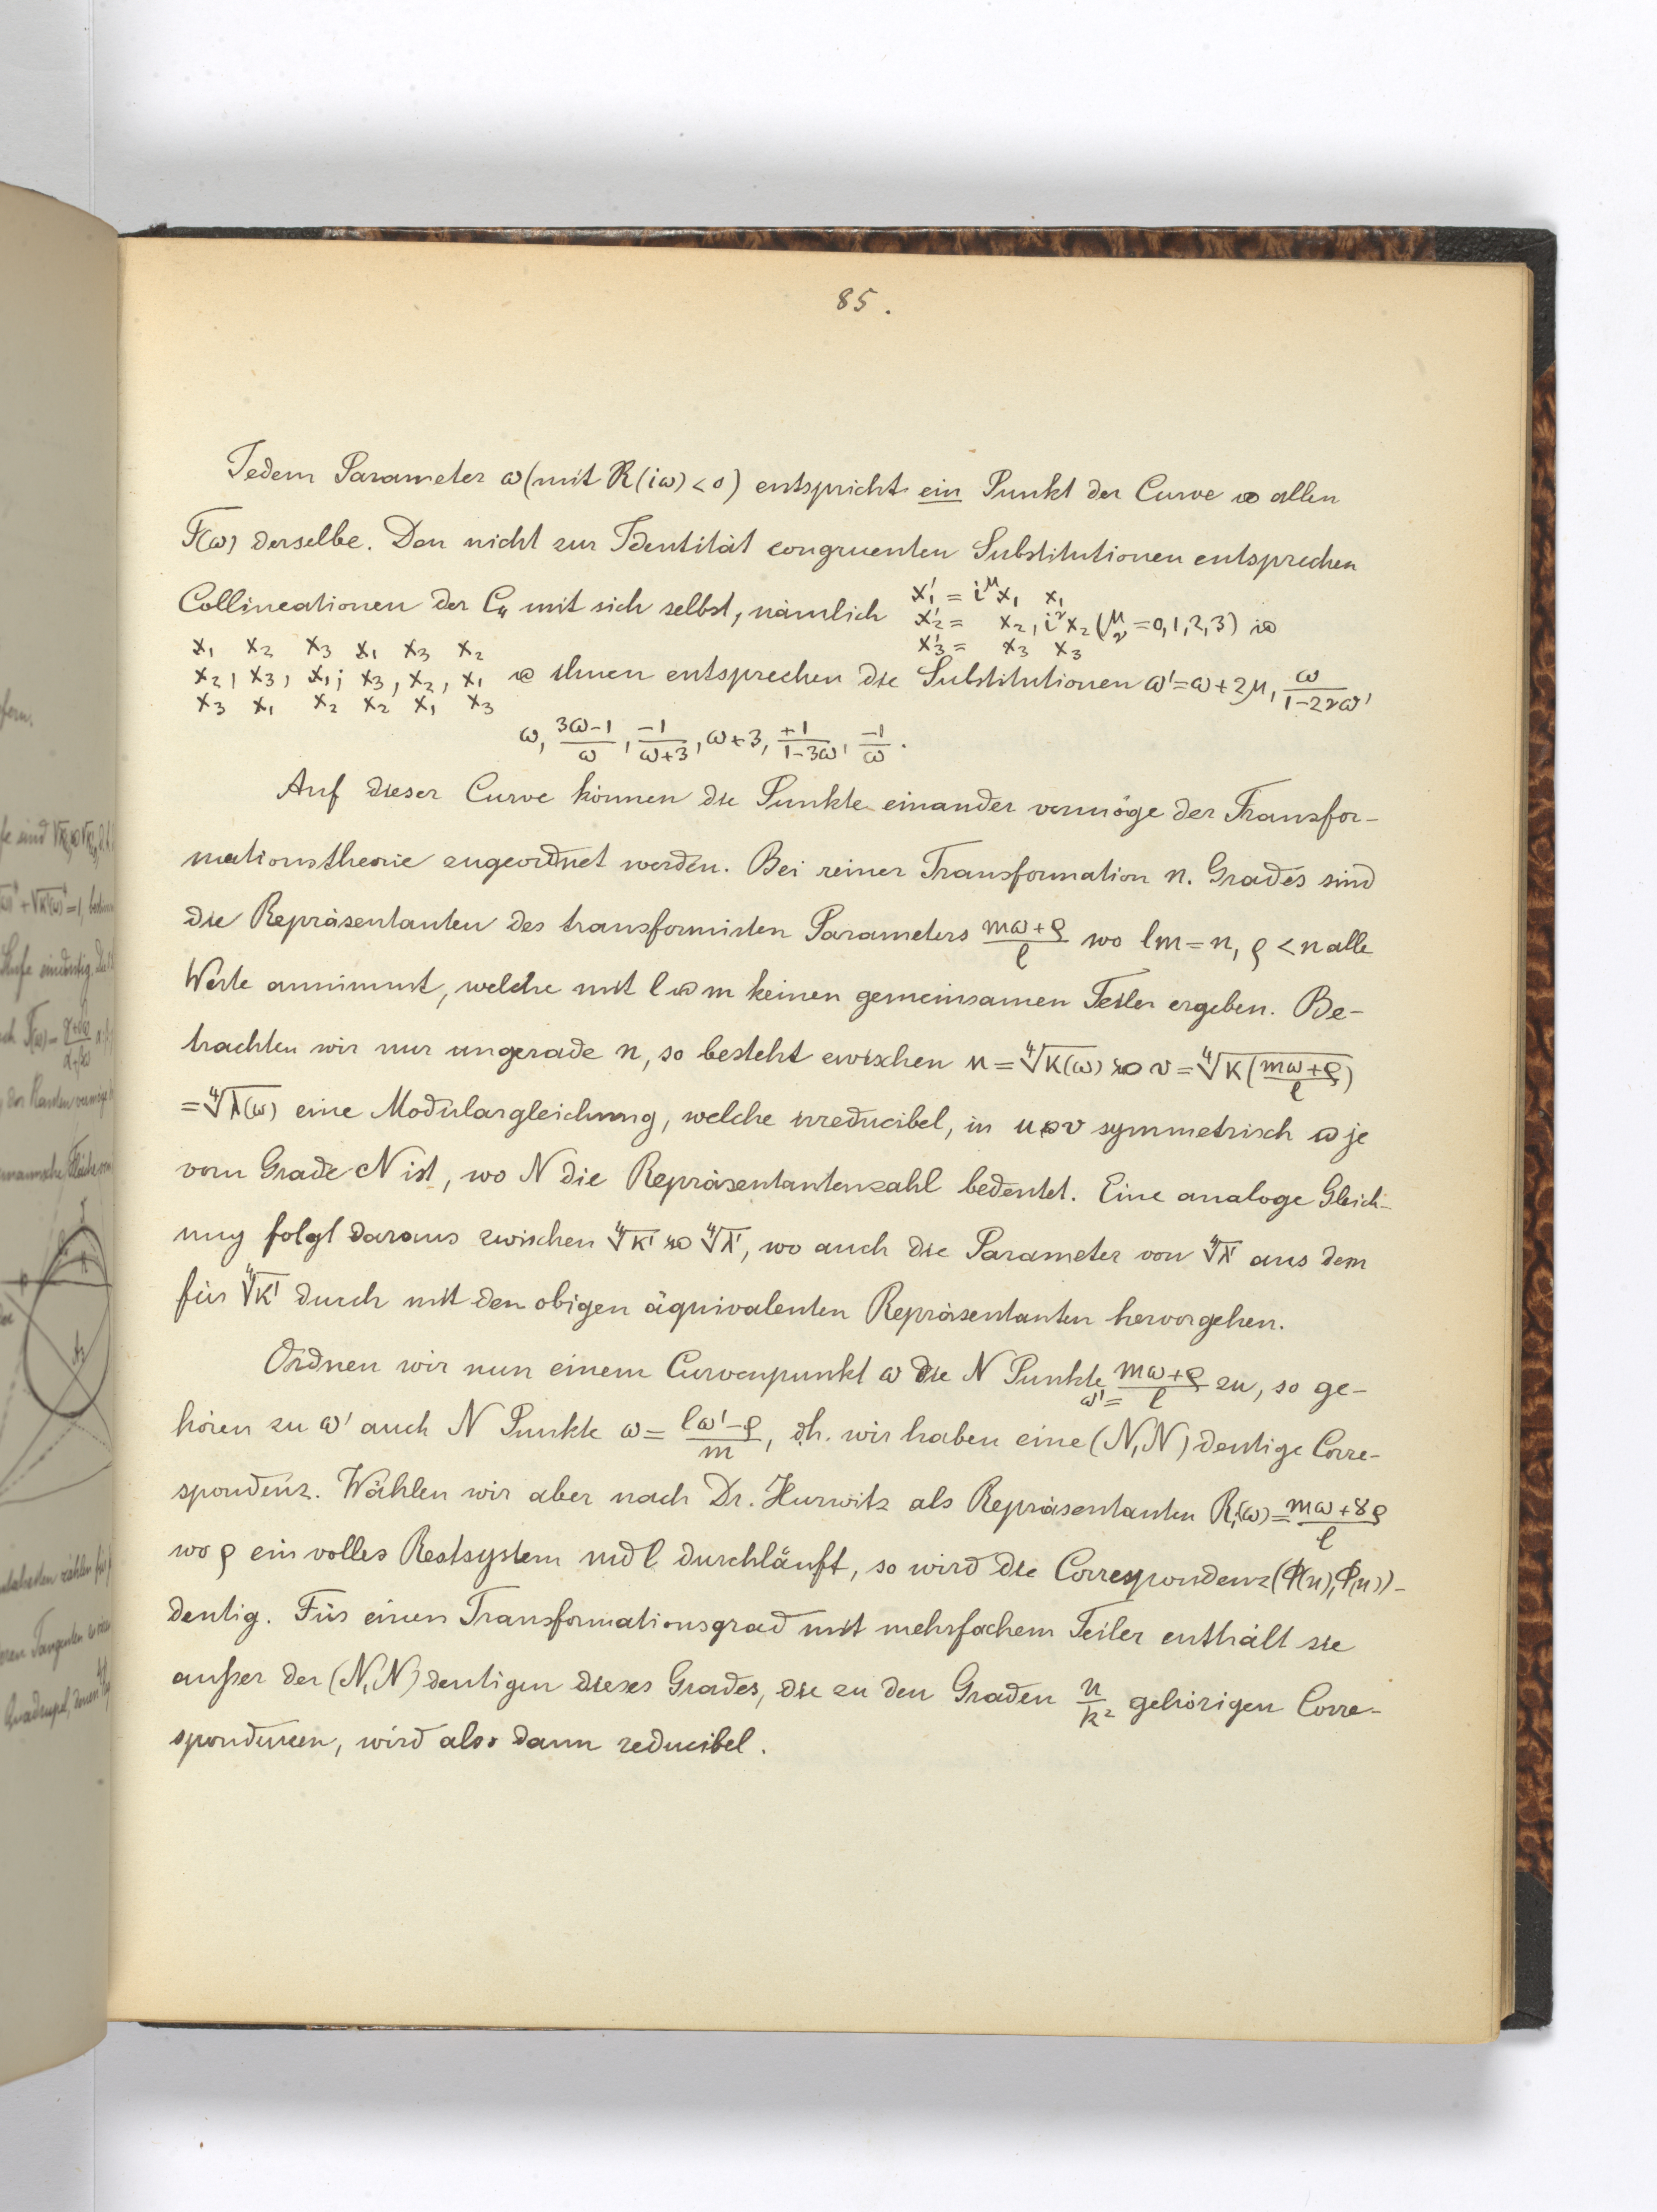 85.
Jedem Parameter ω (mit R(iω) < 0) entspricht ein Punkt der Curve u allen
F(ω) derselbe. Den nicht zur Identität congruenten Substitutionen entsprechen
Collineationen der C₄ mit sich selbst, nämlich x₁' = i^μ x₁ x₁
x₂' = x₂, i^ν x₂ (μ ν = 0,1,2,3) u
x₃' = x₃ x₃
x₁ x₂ x₃ x₁ x₃ x₂
x₂, x₃, x₁; x₃, x₂, x₁ u ihnen entsprechen die Substitutionen ω' = ω + 2μ, ω/(1-2νω),
x₃ x₁ x₂ x₂ x₁ x₃
ω, (3ω-1)/ω, -1/(ω+3), ω+3, +1/(1-3ω), -1/ω.
Auf dieser Curve können die Punkte einander vermöge der Transfor-
mationstheorie zugeordnet werden. Bei reiner Transformation n. Grades sind
die Repräsentanten des transformirten Parameters (mω+ρ)/l wo lm = n, ρ < n alle
Werte annimmt, welche mit l u m keinen gemeinsamen Teiler ergeben. Be-
trachten wir nur ungerade n, so besteht zwischen u = ∜K(ω) u v = ∜K((mω+ρ)/l)
= ∜λ(ω) eine Modulargleichung, welche irreducibel, in u u v symmetrisch u je
vom Grade N ist, wo N die Repräsentantenzahl bedeutet. Eine analoge Gleich-
ung folgt daraus zwischen ∜K' u ∜λ', wo auch die Parameter von ∜λ' aus dem
für ∜K' durch mit den obigen äquivalenten Repräsentanten hervorgehen.
Ordnen wir nun einem Curvenpunkt ω die N Punkte ω' = (mω+ρ)/l zu, so ge-
hören zu ω' auch N Punkte ω = (lω'-ρ)/m, d.h. wir haben eine (N,N) deutige Corre-
spondenz. Wählen wir aber nach Dr. Hurwitz als Repräsentanten Rᵢ(ω) = (mω+8ρ)/l
wo ρ ein volles Restsystem mod l durchläuft, so wird die Correspondenz (Φ(n), Φ(n))-
deutig. Für einen Transformationsgrad mit mehrfachem Teiler enthält sie
außer der (N,N) deutigen dieses Grades, die zu den Graden n/k² gehörigen Corre-
spondenzen, wird also dann reducibel.